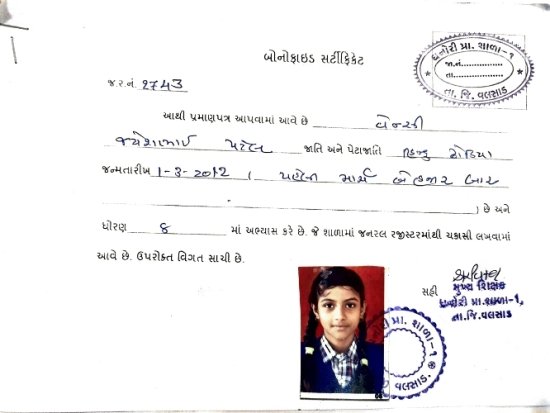 બોનોફાઇડ સર્ટીફિકેટ
ધનોરી પ્રા. શાળા-૧
જા.નં.
તા.
તા. જિ. વલસાડ
જ.ર.નં. 2743
આથી પ્રમાણપત્ર આપવામાં આવે છે વેન્સી
જયેશભાઈ પટેલ જાતિ અને પેટાજાતિ હિન્દુ ઘોડિયા
જન્મતારીખ 1-3-2012 ( પહેલી માર્ચ બે હજાર બાર
) છે અને
ધોરણ 8 માં અભ્યાસ કરે છે. જે શાળામાં જનરલ રજીસ્ટરમાંથી ચકાસી લખવામાં
આવે છે. ઉપરોક્ત વિગત સાચી છે.
સહી
મુખ્ય શિક્ષક
ધનોરી પ્રા.શાળા-1,
તા.જિ.વલસાડ
ધનોરી પ્રા. શાળા-૧
વલસાડ.